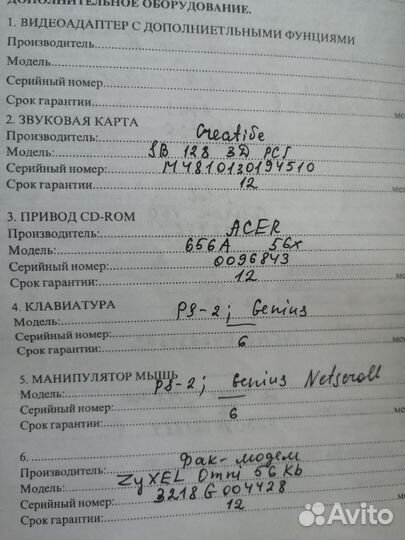 ДОПОЛНИТЕЛЬНОЕ ОБОРУДОВАНИЕ.
1. ВИДЕОАДАПТЕР С ДОПОЛНИЕТЛЬНЫМИ ФУНЦИЯМИ
Производитель:
Модель
Серийный номер
Срок гарантии
2. ЗВУКОВАЯ КАРТА
Производитель: Creative
Модель: SB 128 3D PCI
Серийный номер: M4810130194510
Срок гарантии 12
3. ПРИВОД CD-ROM
Производитель: ACER
Модель: 656A 56x
Серийный номер: 0096843
Срок гарантии: 12
4. КЛАВИАТУРА
Модель: PS-2; Genius
Серийный номер:
Срок гарантии: 6
5. МАНИПУЛЯТОР МЫШЬ
Модель: PS-2; Genius Netscroll
Серийный номер:
Срок гарантии: 6
6. Фак-модем
Производитель: ZyXEL Omni 56 Kb
Модель:
Серийный номер: 3218G004428
Срок гарантии: 12
Avito